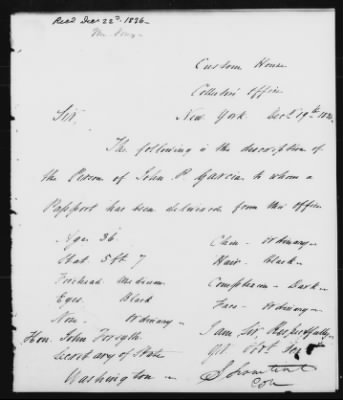 Recd Dec 22d. 1836
Custom House
Collector's Office
New York Decr. 19th 1836
Sir,
The following is the description of
the Person of John P. Garcia to whom a
Passport has been delivered from this Office
Age 36
Chin - Ordinary -
Stat. 5ft 7
Hair - Black -
Forehead Medium
Complexion - Dark -
Eyes Black
Face - Ordinary -
Nose - Ordinary -
I am Sir, Respectfully
Hon. John Forsyth
Yr. Obt. Ser
Secretary of State
Washington -
Col